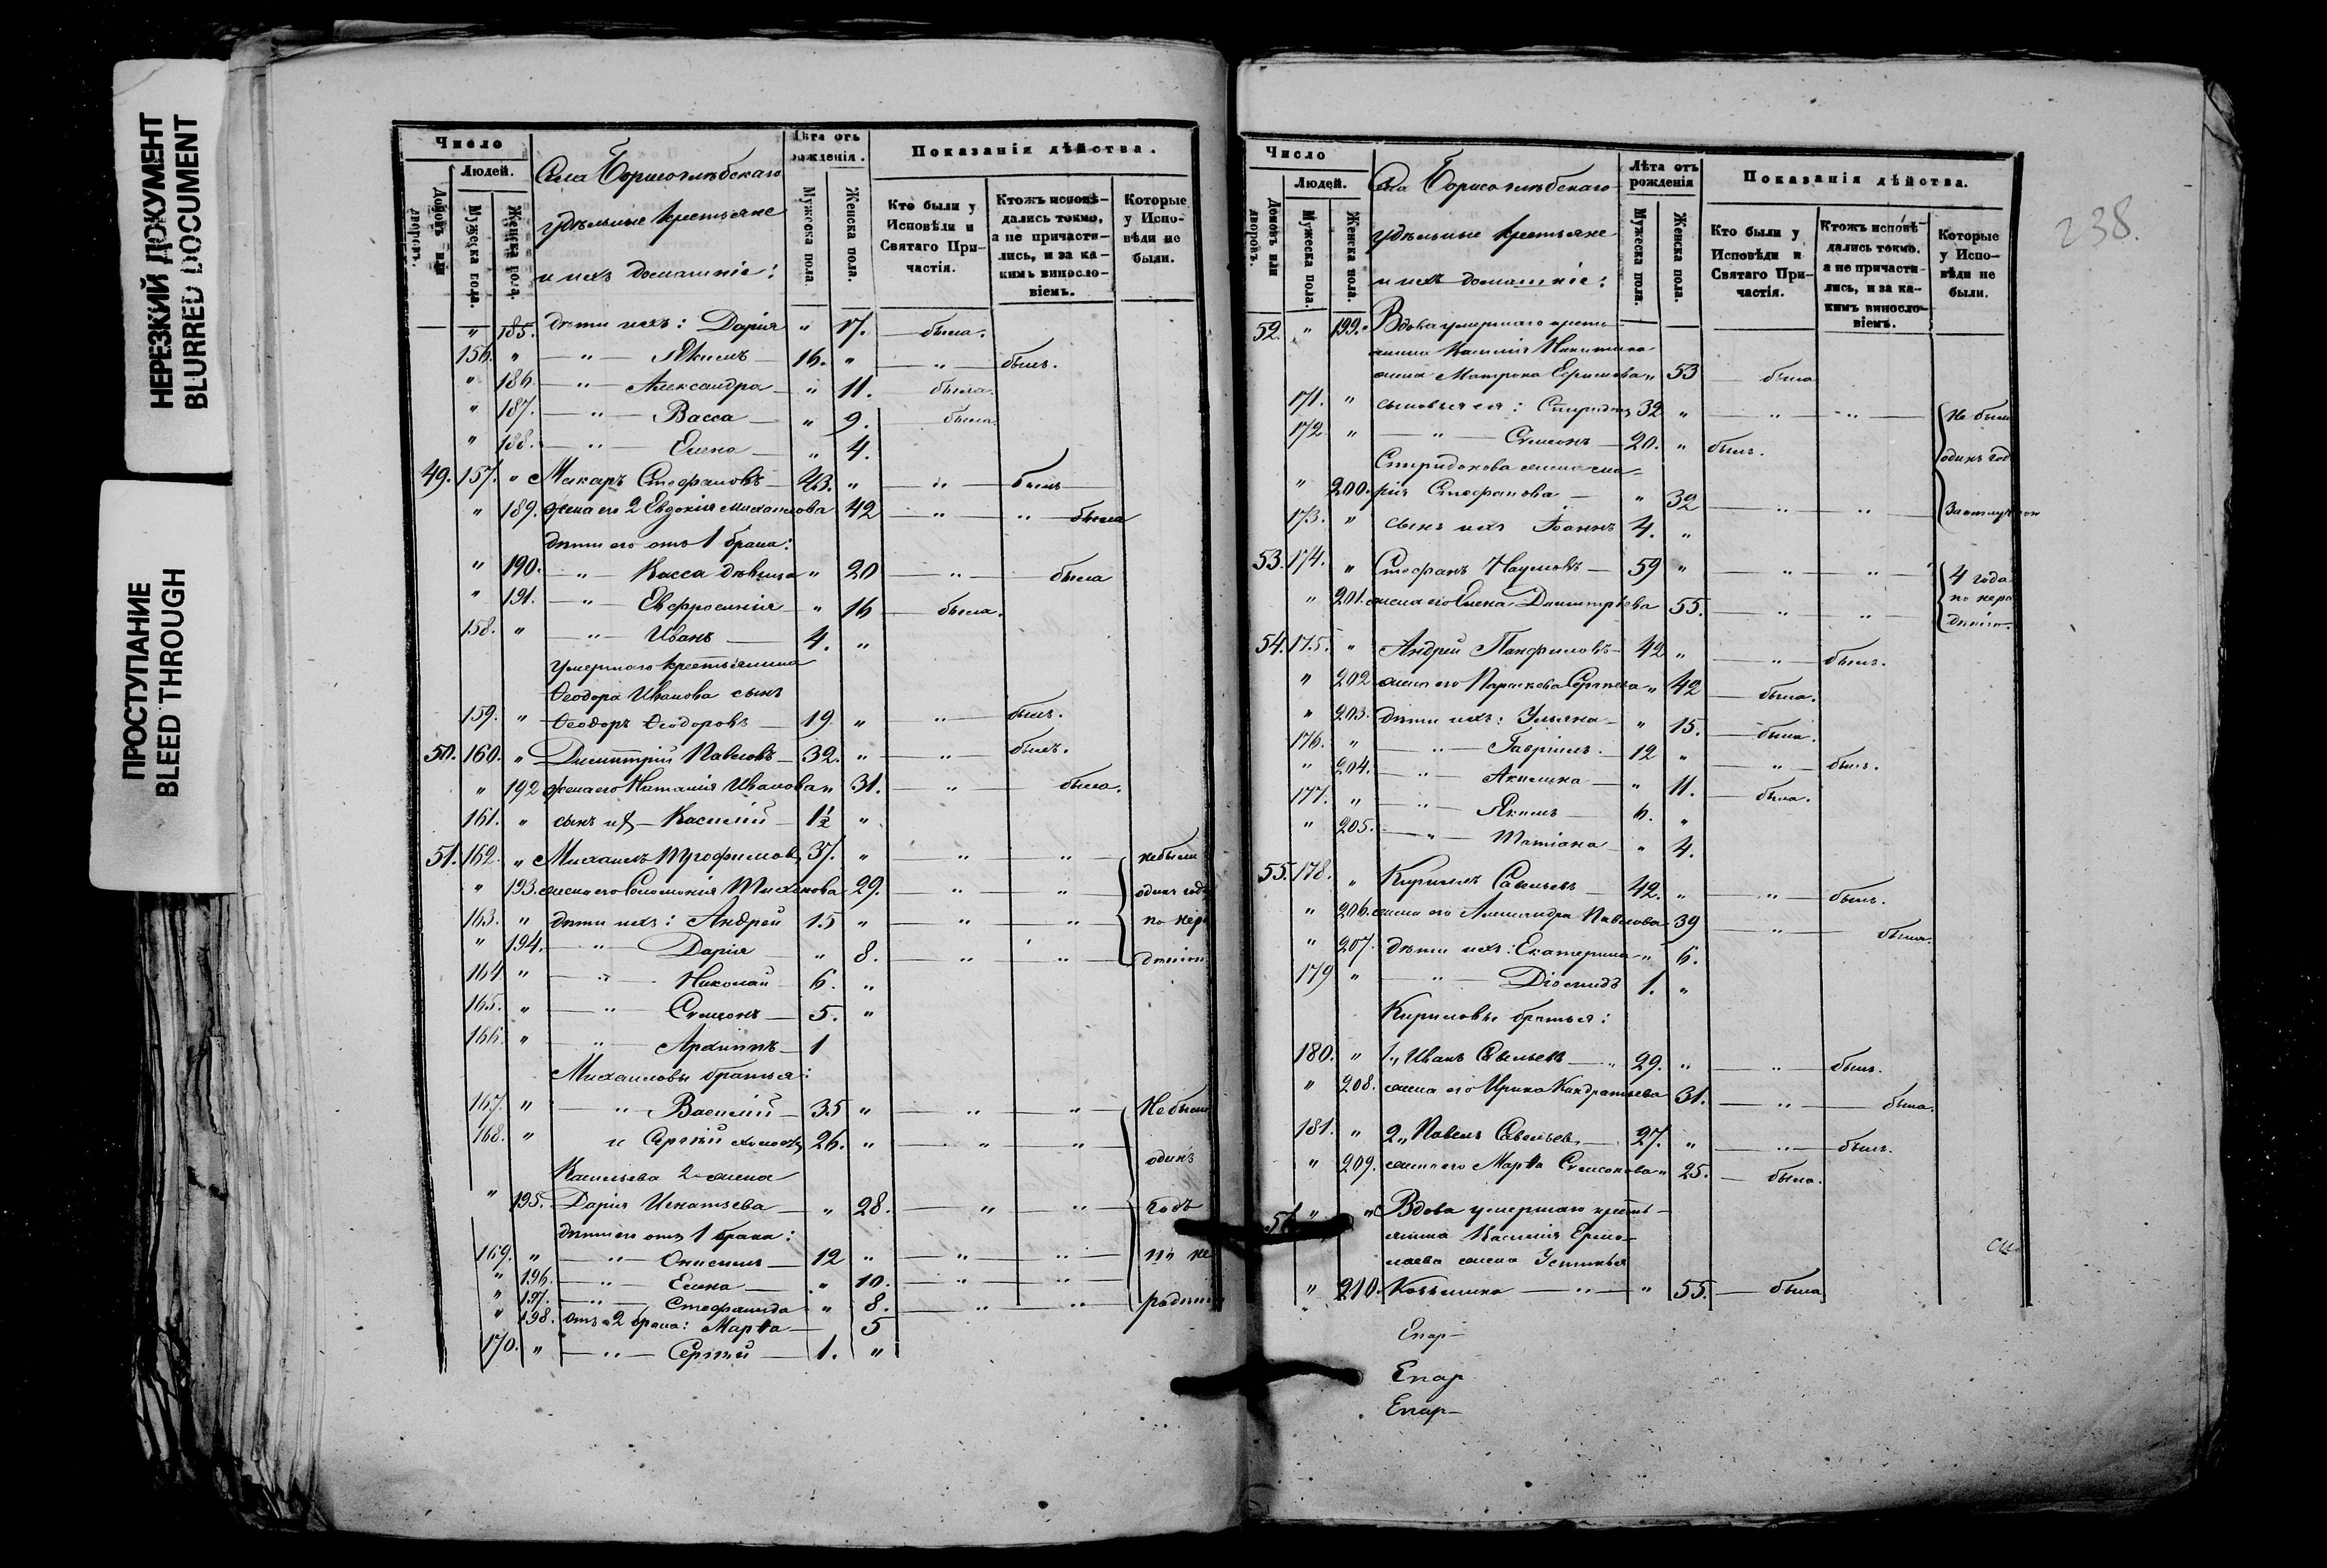 НЕРЕЗКИЙ ДОКУМЕНТ
BLURRED DOCUMENT
ПРОСТУПАНИЕ
BLEED THROUGH
Число
Людей.
Домовъ или дворовъ.
Мужеска пола.
Женска пола.
Села Борисоглѣбскаго
удѣльные крестьяне
и ихъ домашніе:
Лѣта отъ рожденія.
Мужеска пола.
Женска пола.
Показанія дѣйства.
Кто были у Исповѣди и Святаго Причастія.
Ктожъ исповѣдались токмо, а не причастились, и за какимъ винословіемъ.
Которые у Исповѣди не были.
" 185. дѣти ихъ: Дарія " 17. была.
156. " — " — Якимъ 16. " — " — былъ.
" 186. — " — Александра " 11. была.
" 187. — " — Васса " 9. была.
" 188. — " — Елена " 4.
49. 157. " Макаръ Стефановъ 43. " — " — былъ
" 189. жена его 2 Евдокія Михаилова 42 — " — " была
дѣти его отъ 1 брака:
" 190. — " — Васса дѣвица " 20 — " — была
" 191. — " — Евфросинія " 16 была.
158. " — " — Иванъ 4. "
умершаго крестьянина
Ѳеодора Иванова сынъ
159. " Ѳеодоръ Ѳеодоровъ 19 " — " — былъ.
50. 160. " Димитрій Павловъ 32. " — " — былъ.
" 192 жена его Наталія Иванова " 31. — " — была.
161. " сынъ ихъ Василій 1½ "
51. 162. " Михаилъ Трофимовъ 37. " — " — " — не были
" 193. жена его Соломонія Тиханова 29. — " — " — одинъ годъ
163. " дѣти ихъ: Андрей 15 " — " — " — по нера
" 194. — " — Дарія " 8. — " — " — дѣнію
164 " — " — Николай 6. "
165. " — " — Семіонъ 5. "
166. " — " — Архиппъ 1
Михаиловы братья:
167. " — " — Василій 35 " — " — " — Не были
168. " и Сергѣй холостъ 26. " — " — " одинъ
Васильева 2 жена
" 195. Дарія Игнатьева " 28. — " — " — годъ
дѣти его отъ 1 брака:
169. " — " — Онисимъ 12 " — " — " — по не
" 196. — " — Елена " 10. — " — " —
" 197. — " — Стефанида " 8. — " — " радѣнію
" 198. отъ 2 брака: Марѳа 5
170. " — " — Сергѣй 1. "
238.
Число
Людей.
Домовъ или дворовъ.
Мужеска пола.
Женска пола.
Села Борисоглѣбскаго
удѣльные крестьяне
и ихъ домашніе:
Лѣта отъ рожденія
Мужеска пола.
Женска пола.
Показанія дѣйства.
Кто были у Исповѣди и Святаго Причастія.
Ктожъ исповѣдались токмо, а не причастились, и за какимъ винословіемъ.
Которые у Исповѣди не были.
52. " 199. Вдова умершаго кресть-
янина Василія Никитина
жена Матрона Ефимова " 53 была
171. " сыновья ея: Спиридонъ 32 " — " — " — Не были
172. " — " — Семіонъ 20. " былъ. одинъ год
Спиридонова жена Ма-
" 200. рія Стефанова " 32 — " — " За отлучкою
173. " сынъ ихъ Іоаннъ 4. "
53. 174. " Стефанъ Наумовъ 59 " — " — " 4 года
" 201. жена его Елена Димитріева 55. — " — " по нера
дѣнію.
54. 175. " Андрей Панфиловъ 42 " — " — былъ.
" 202 жена его Параскева Сергѣева " 42 была.
" 203. дѣти ихъ: Ульяна " 15. была.
176. " — " — Гавріилъ 12 " — " — былъ.
" 204. — " — Акилина " 11. была.
177. " — " — Якимъ 6. "
" 205. — " — Татіана " 4.
55. 178. " Кириллъ Савельевъ 42. " — " — былъ.
" 206. жена его Александра Павлова 39 — " — была.
" 207. дѣти ихъ: Екатерина " 6.
179 " — " — Діомидъ 1. "
Кириловы братья:
180. " 1., Иванъ Савельевъ 29. " — " — былъ.
" 208. жена его Ирина Кандратьева 31. — " — была.
181. " 2., Павелъ Савельевъ 27. " — " — былъ.
" 209. жена его Марѳа Семіонова " 25. была.
56 " " Вдова умершаго кресть-
янина Василія Ермо-
лаева жена Устинья
" 210. Козьмина — " — " 55. была
Епар-
Епар
Епар-